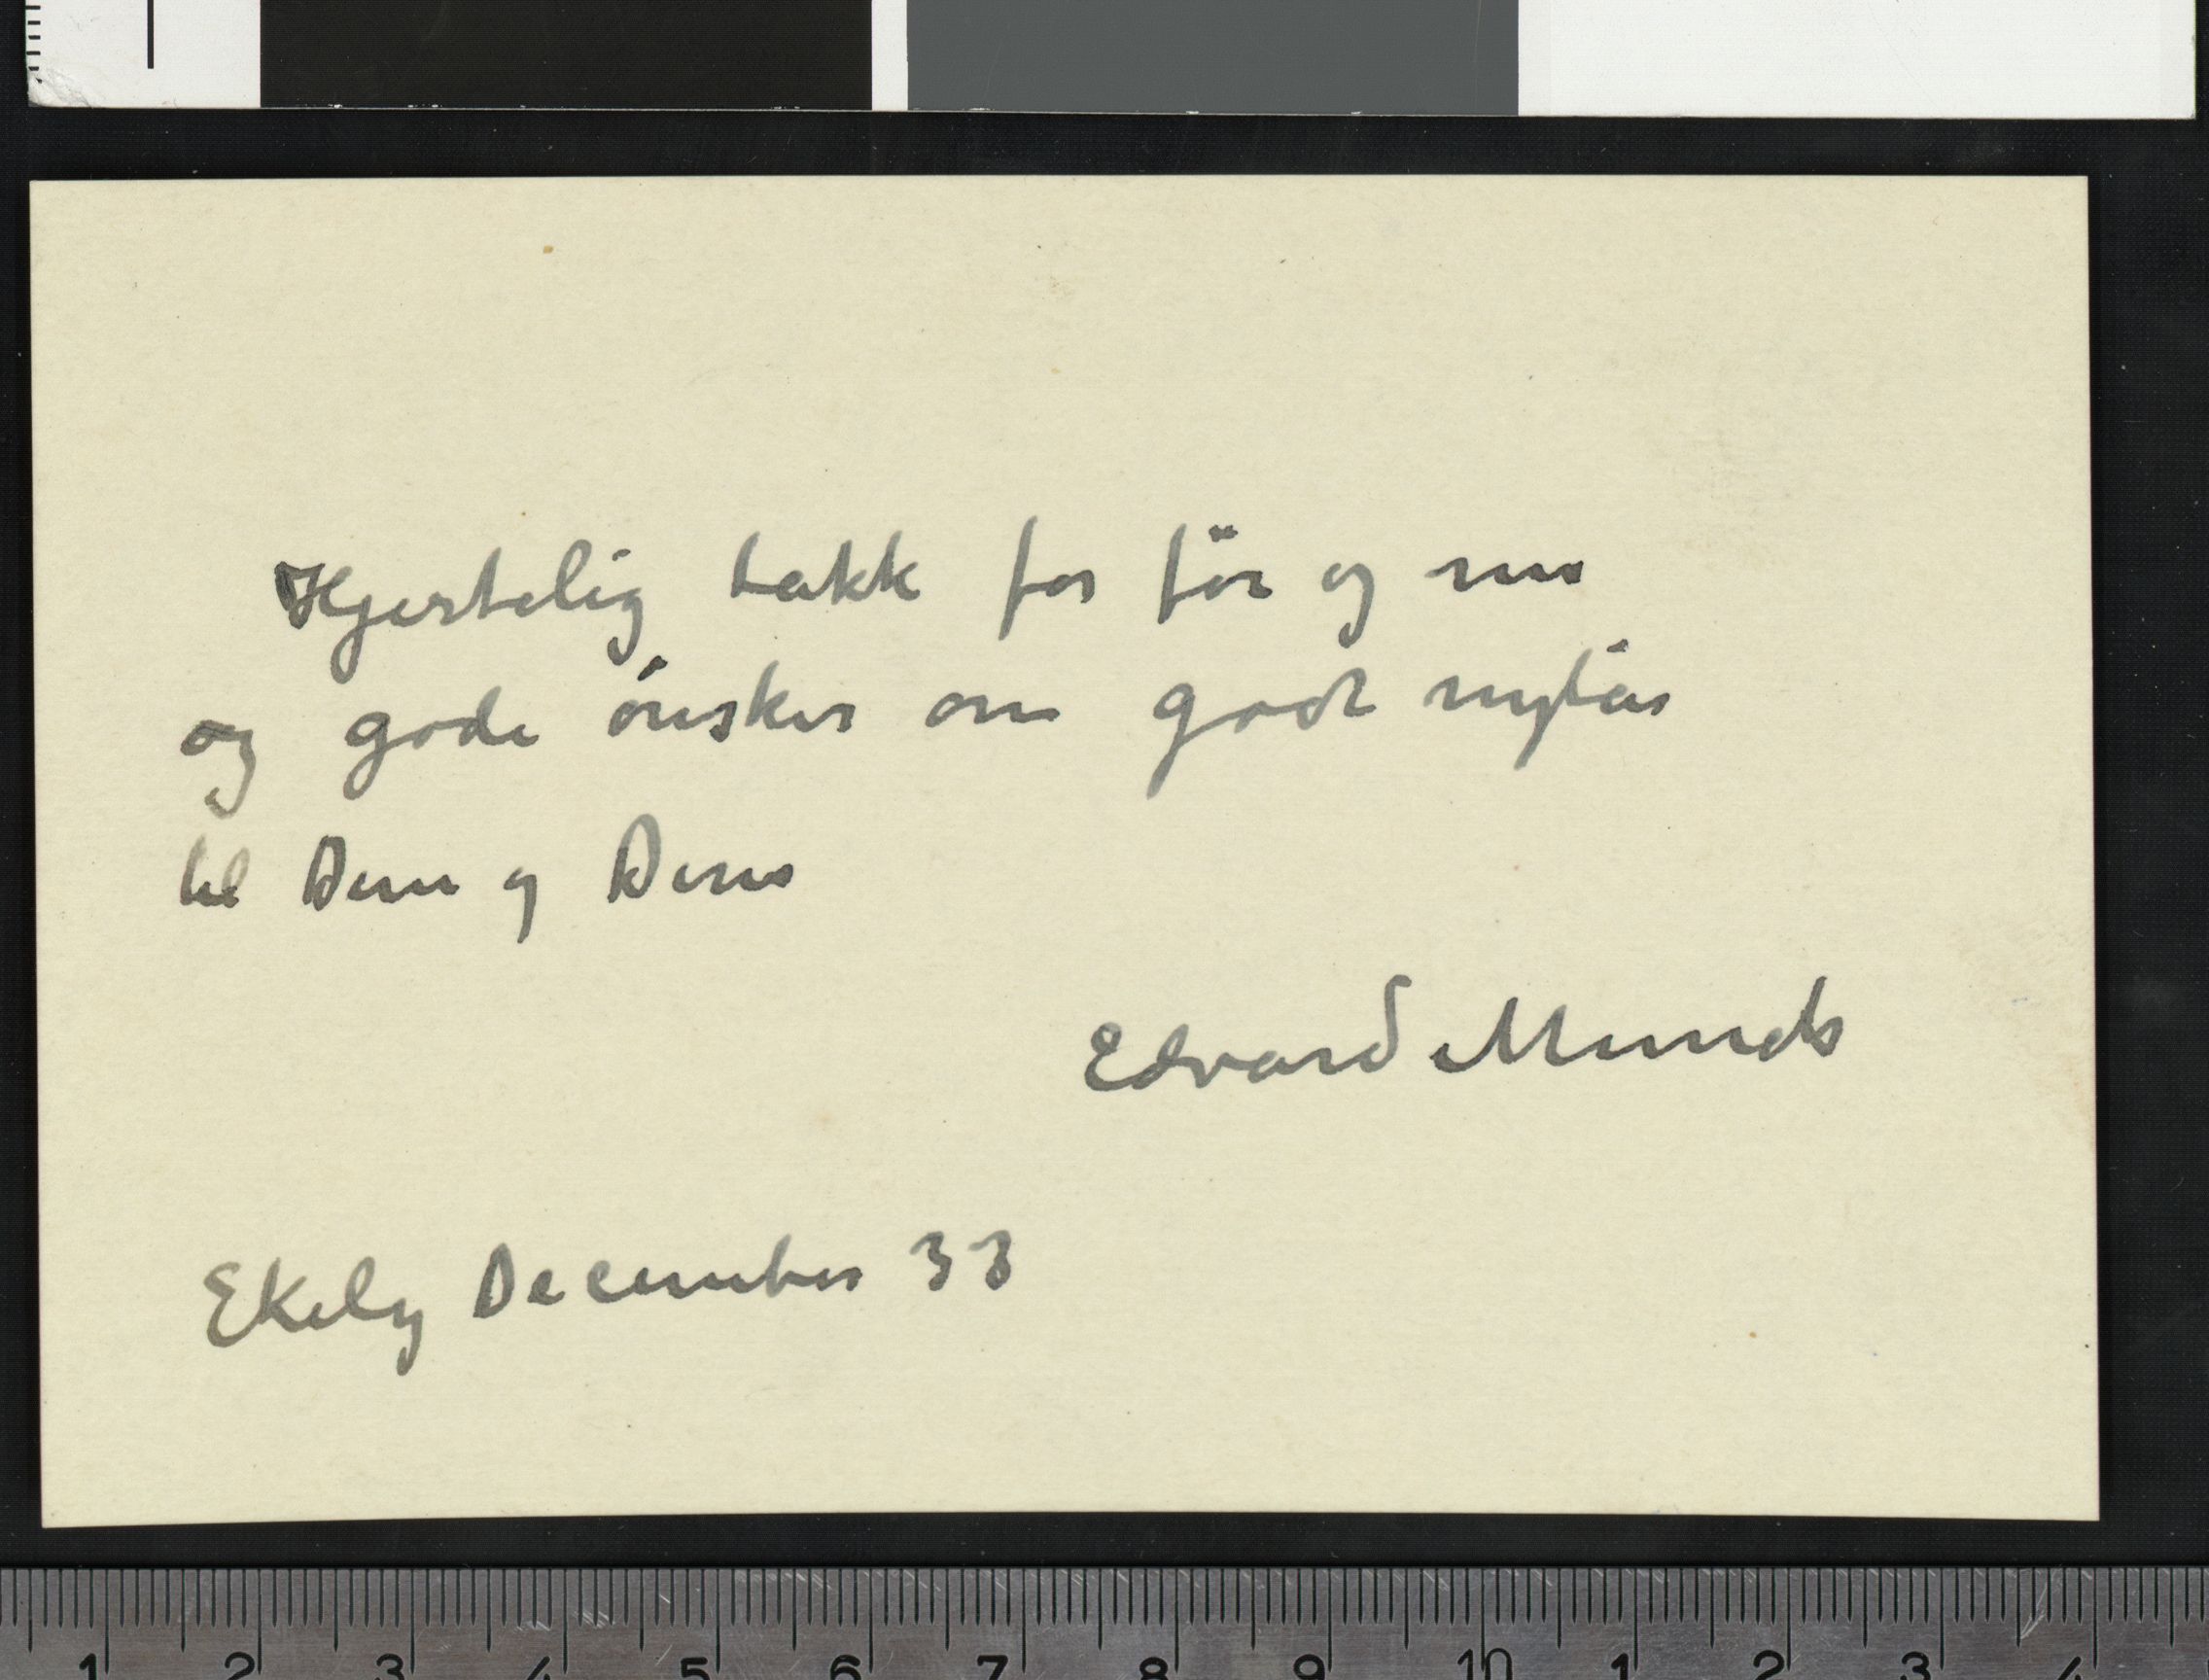 Hjertelig takk for för og nu
og gode ónsker om godt nytår
til Dem og Deres
Edvard Munch
Ekely December 33
1 2 3 4 5 6 7 8 9 10 1 2 3 4